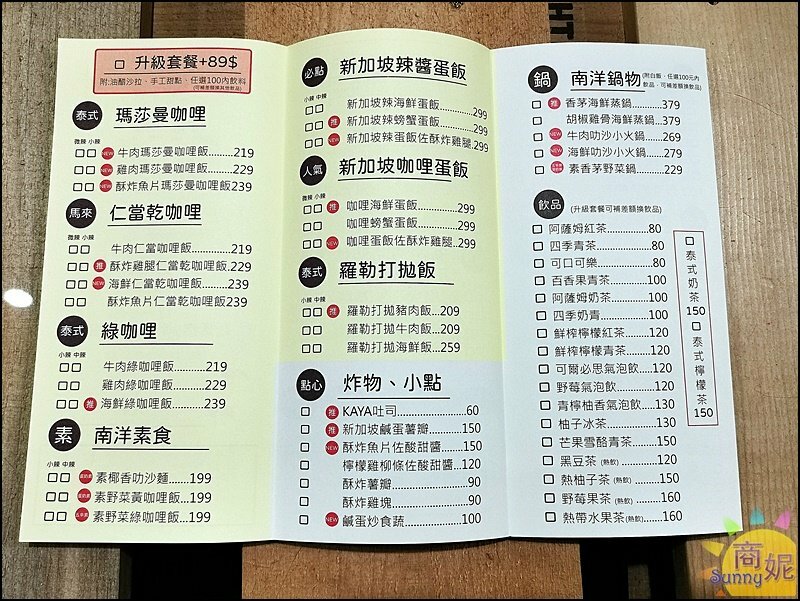 升級套餐+89$
附:油醋沙拉、手工甜點、任選100內飲料
(可補差額換其他飲品)
泰式 瑪莎曼咖哩
微辣 小辣
NEW 牛肉瑪莎曼咖哩飯.........219
NEW 雞肉瑪莎曼咖哩飯.........229
NEW 酥炸魚片瑪莎曼咖哩飯239
馬來 仁當乾咖哩
微辣 小辣
牛肉仁當咖哩飯...............219
推 酥炸雞腿仁當乾咖哩飯.229
NEW 海鮮仁當乾咖哩飯..........239
酥炸魚片仁當乾咖哩飯239
泰式 綠咖哩
小辣 中辣
牛肉綠咖哩飯..............219
雞肉綠咖哩飯..............229
推 海鮮綠咖哩飯..............239
素 南洋素食
小辣 中辣
素椰香叻沙麵.........199
素野菜黃咖哩飯...199
素野菜綠咖哩飯...199
必點 新加坡辣醬蛋飯
小辣 中辣
新加坡辣海鮮蛋飯.........299
推 新加坡辣螃蟹蛋飯.........299
NEW 新加坡辣蛋飯佐酥炸雞腿.299
人氣 新加坡咖哩蛋飯
微辣 小辣
推 咖哩海鮮蛋飯.............299
咖哩螃蟹蛋飯.............299
NEW 咖哩蛋飯佐酥炸雞腿..299
泰式 羅勒打拋飯
小辣 中辣
推 羅勒打拋豬肉飯...209
羅勒打拋牛肉飯...209
羅勒打拋海鮮飯...259
點心 炸物、小點
推 KAYA吐司........................60
推 新加坡鹹蛋薯瓣............150
NEW 酥炸魚片佐酸甜醬........150
檸檬雞柳條佐酸甜醬...120
酥炸薯瓣..........................90
酥炸雞塊..........................90
NEW 鹹蛋炒食蔬...................100
鍋 南洋鍋物
(附白飯、任選100元內
飲品，可補差額換飲品)
推 香茅海鮮蒸鍋..........379
胡椒雞骨海鮮蒸鍋...379
NEW 牛肉叻沙小火鍋.......269
NEW 海鮮叻沙小火鍋.......279
素香茅野菜鍋...........229
飲品 (升級套餐可補差額換飲品)
阿薩姆紅茶.............80
四季青茶................80
可口可樂................80
百香果青茶...........100
阿薩姆奶茶...........100
四季奶青..............100
鮮榨檸檬紅茶........120
鮮榨檸檬青茶........120
可爾必思氣泡飲.....120
野莓氣泡飲...........120
青檸柚香氣泡飲.....130
柚子冰茶..............130
芒果雪酪青茶........150
黑豆茶 (熱飲)..........120
熱柚子茶 (熱飲).......150
野莓果茶 (熱飲).......160
熱帶水果茶(熱飲).....160
泰式奶茶150
泰式檸檬茶150
商妮
Sunny